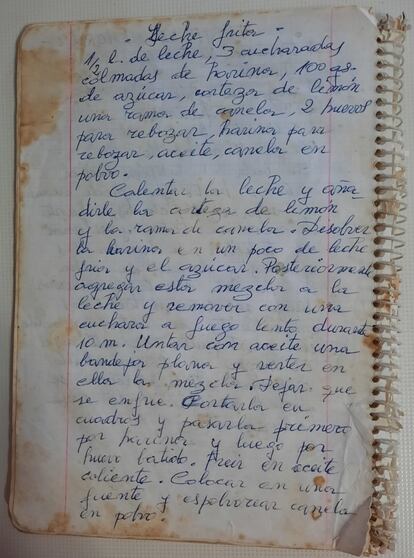 - Leche frita -
1/2 l. de leche, 3 cucharadas
colmadas de harina, 100 gs.
de azúcar, corteza de limón
una rama de canela, 2 huevos
para rebozar, harina para
rebozar, aceite, canela en
polvo.
Calentar la leche y aña-
dirle la corteza de limón
y la rama de canela. Disolver
la harina en un poco de leche
fria y el azucar. Posteriormente
agregar esta mezcla a la
leche y remover con una
cuchara a fuego lento durante
10 m. Untar con aceite una
bandeja plana y verter en
ella la mezcla. Dejar que
se enfríe. Cortarla en
cuadros y pasarla primero
por harina y luego por
huevo batido. Freir en aceite
caliente. Colocar en una
fuente y espolvorear canela
en polvo.